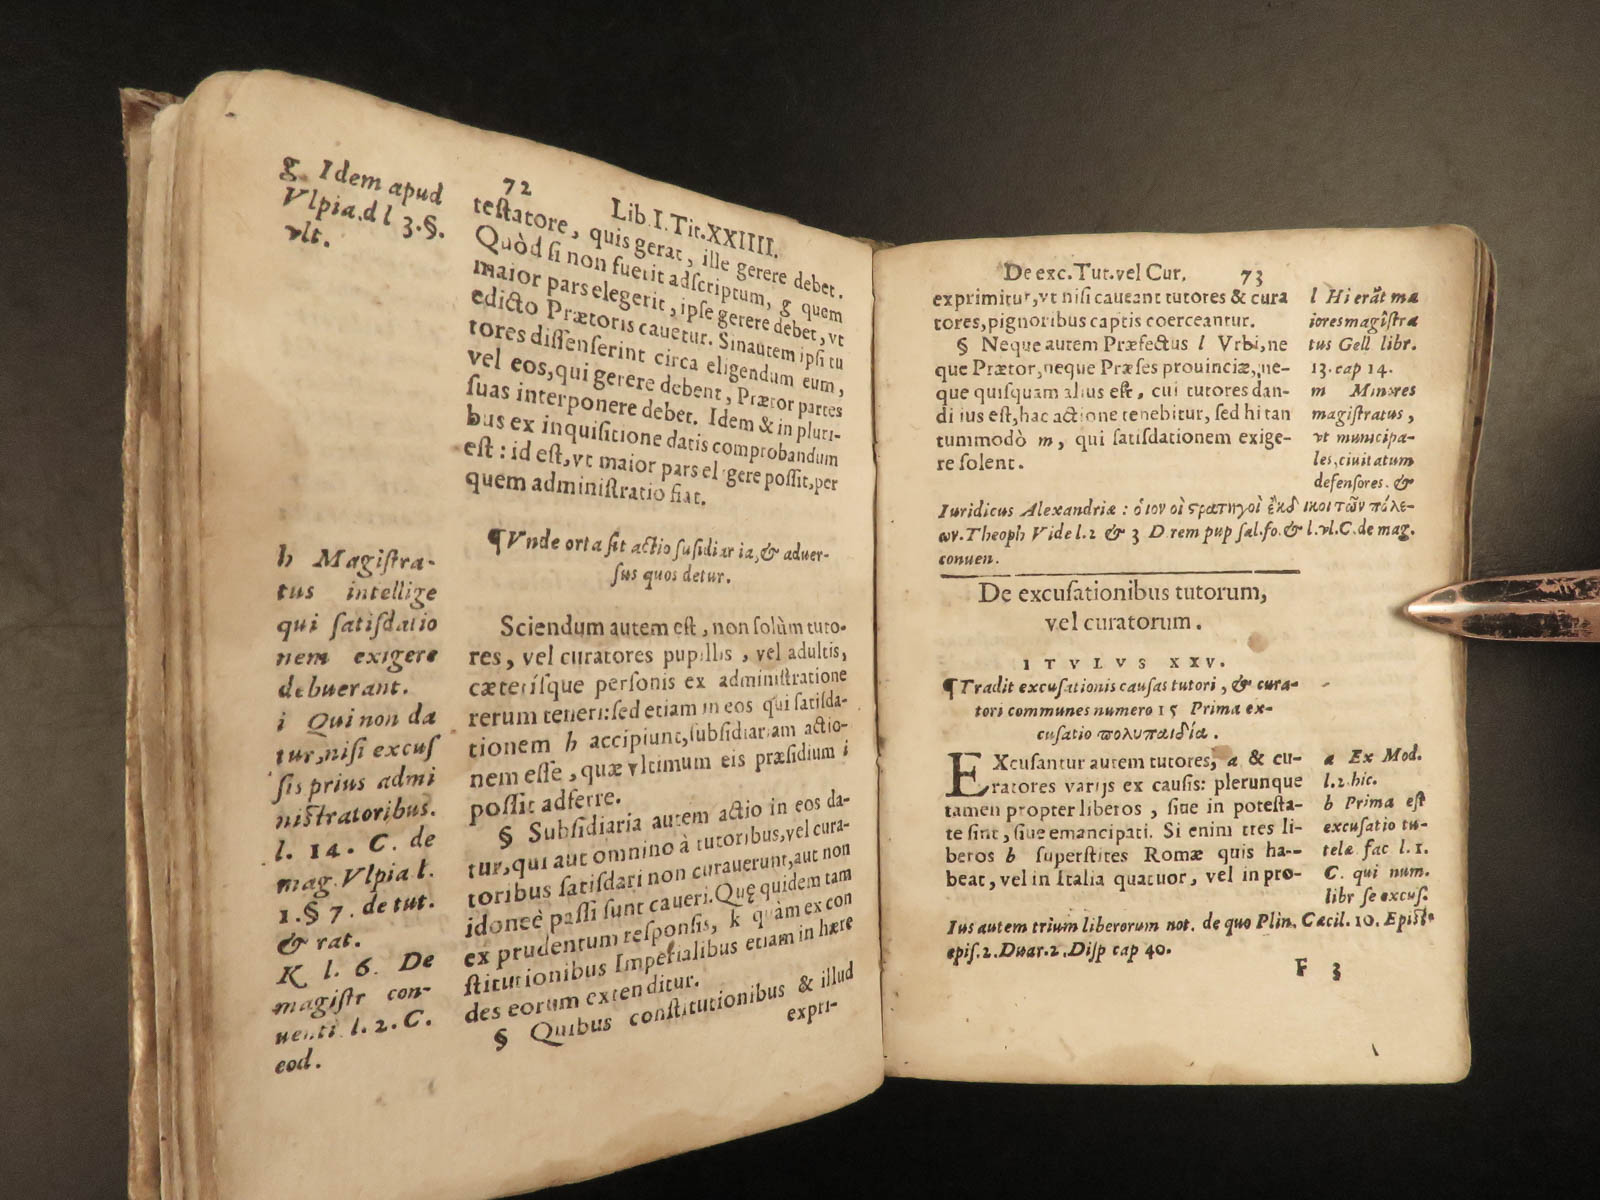 72
Lib. I. Tit. XXIIII.
g Idem apud
Vlpia. d l 3. §.
vlt.
teſtatore, quis gerat, ille gerere debet.
Quòd ſi non fuerit adſcriptum, g quem
maior pars elegerit, ipſe gerere debet, vt
edicto Prætoris cauetur. Sin autem ipſi tu
tores diſſenſerint circa eligendum eum,
vel eos, qui gerere debent, Prætor partes
ſuas interponere debet. Idem & in pluri-
bus ex inquiſitione datis comprobandum
eſt: id eſt, vt maior pars eligere poſſit, per
quem adminiſtratio fiat.
¶ Vnde orta ſit actio ſuſidiaria, & aduer-
ſus quos detur.
h Magiſtra-
tus intellige
qui ſatiſdatio
nem exigere
debuerant.
i Qui non da
tur, niſi excuſ
ſis prius admi
niſtratoribus.
l. 14. C. de
mag. Vlpia l.
1. § 7. de tut.
& rat.
K l. 6. De
magiſtr con-
uenti l. 2. C.
eod.
Sciendum autem eſt, non ſolùm tuto-
res, vel curatores pupillis, vel adultis,
cæteriſque perſonis ex adminiſtratione
rerum teneri: ſed etiam in eos qui ſatiſda-
tionem h accipiunt, ſubſidiariam actio-
nem eſſe, quæ vltimum eis præſidium i
poſſit adferre.
§ Subſidiaria autem actio in eos da-
tur, qui aut omnino à tutoribus, vel cura-
toribus ſatiſdari non curauerunt, aut non
idoneè paſſi ſunt caueri. Quę quidem tam
ex prudentum reſponſis, k quàm ex con
ſtitutionibus Imperialibus etiam in hære
des eorum extenditur.
§ Quibus conſtitutionibus & illud
expri-
De exc. Tut. vel Cur. 73
exprimitur, vt niſi caueant tutores & cura
tores, pignoribus captis coerceantur.
§ Neque autem Præfectus l Vrbi, ne
que Prætor, neque Præſes prouinciæ, ne-
que quiſquam alius eſt, cui tutores dan-
di ius eſt, hac actione tenebitur, ſed hi tan
tummodò m, qui ſatiſdationem exige-
re ſolent.
l Hi erãt ma
iores magiſtra
tus Gell libr.
13. cap 14.
m Minores
magiſtratus,
vt municipa-
les, ciuitatum
defenſores. &
Iuridicus Alexandriæ: ὁιον οἱ στρατηγοὶ ἔκδικοι τῶν πόλε-
ων. Theoph Vide l. 2 & 3 D rem pup ſal. fo. & l. vl. C. de mag.
conuen.
De excuſationibus tutorum,
vel curatorum.
ITVLVS XXV.
¶ Tradit excuſationis cauſas tutori, & cura-
tori communes numero 15 Prima ex-
cuſatio πολυπαιδία.
EXcuſantur autem tutores, a & cu-
ratores varijs ex cauſis: plerunque
tamen propter liberos, ſiue in poteſta-
te ſint, ſiue emancipati. Si enim tres li-
beros b ſuperſtites Romæ quis ha-
beat, vel in Italia quatuor, vel in pro-
a Ex Mod.
l. 2. hic.
b Prima eſt
excuſatio tu-
telæ fac l. 1.
C. qui num.
libr ſe excuſ.
Ius autem trium liberorum not. de quo Plin. Cæcil. 10. Epiſt.
epiſ. 2. Duar. 2. Diſp cap 40.
F 3